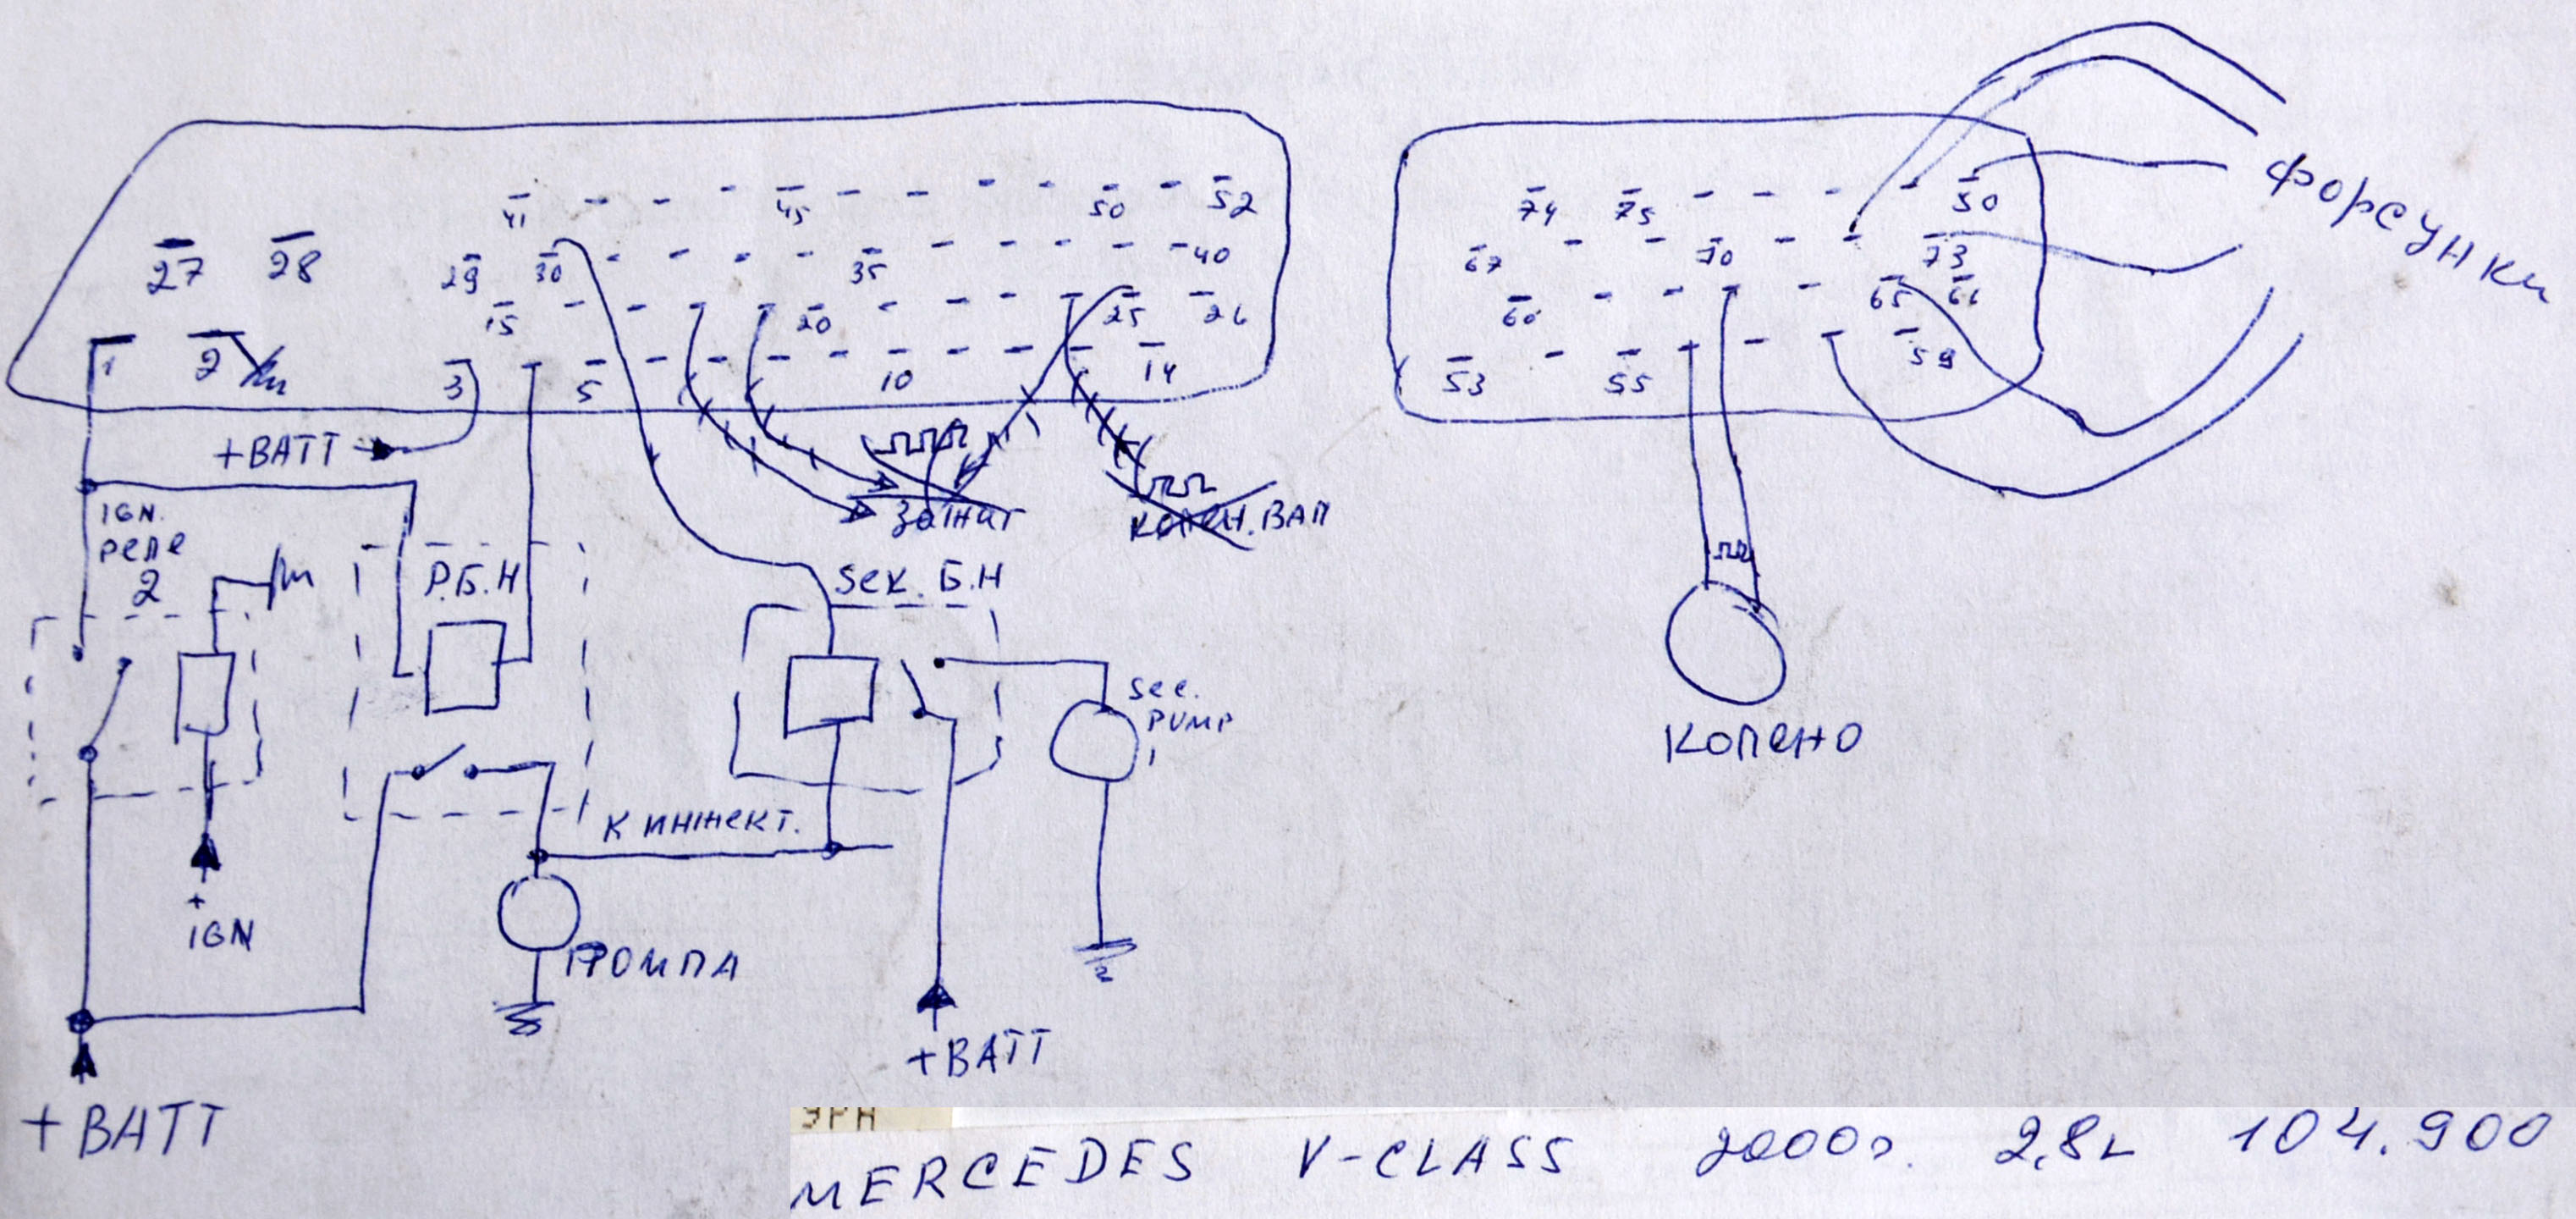 41 45 50 52
27 28 29 30 35 40
15 20 25 26
1 2 3 5 10 14
74 75 80
67 70 73
60 65 66
53 55 59
форсунки
+BATT
IGN.
реле
2
Р.Б.Н
запаг
колен.вал
Sек. Б.Н
sec.
PUMP
1
колено
к инжект.
+
IGN
ПОМПА
+BATT
+BATT
ЭРН
MERCEDES V-CLASS 2000г. 2,8L 104.900